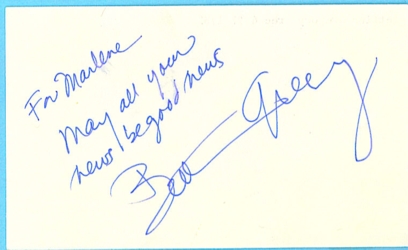 For Marlene
May all your
news be good news